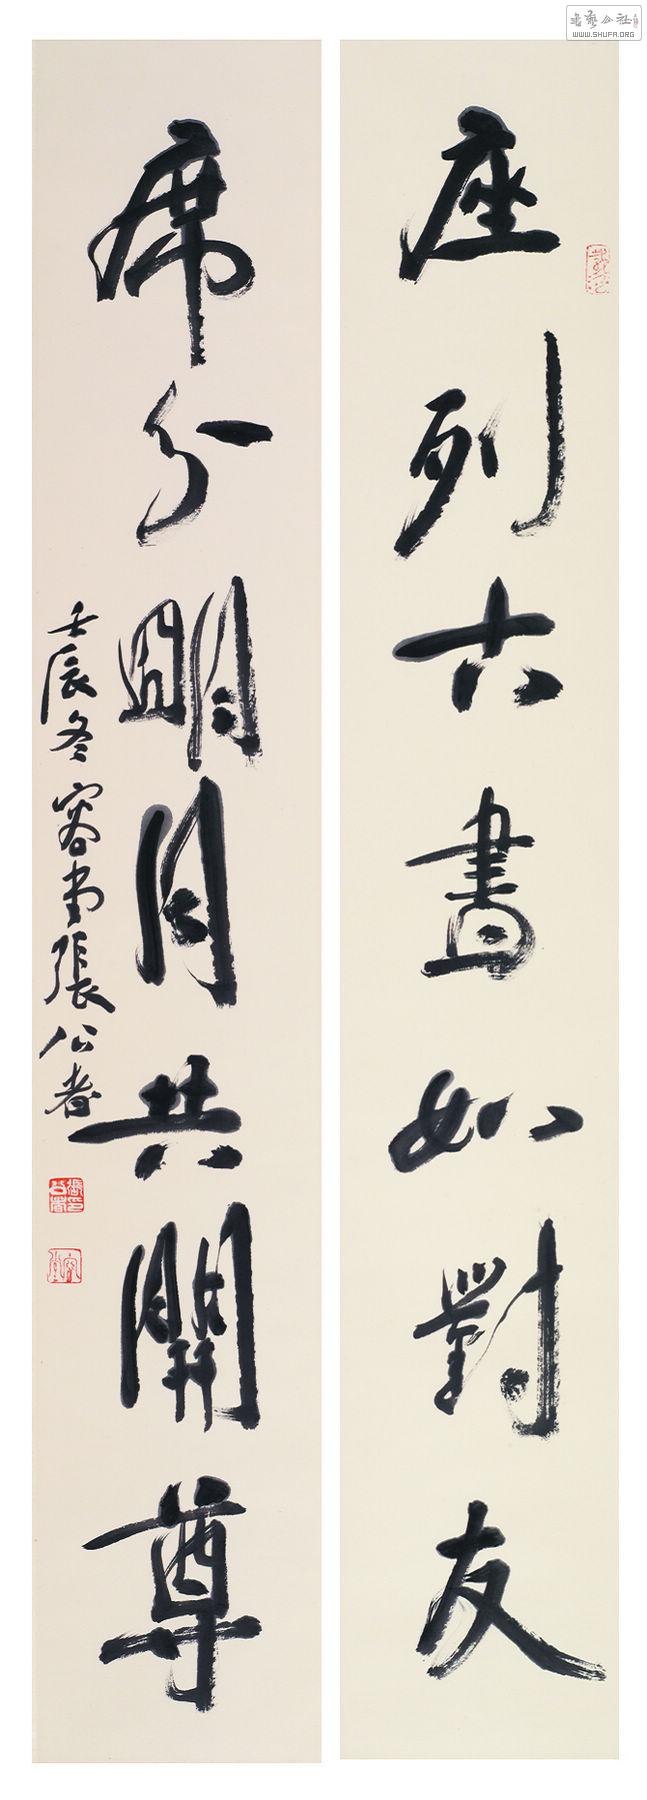 書藝公社
WWW.SHUFA.ORG
座列古畫如對友
席分明月共開尊
壬辰冬容堂張公者